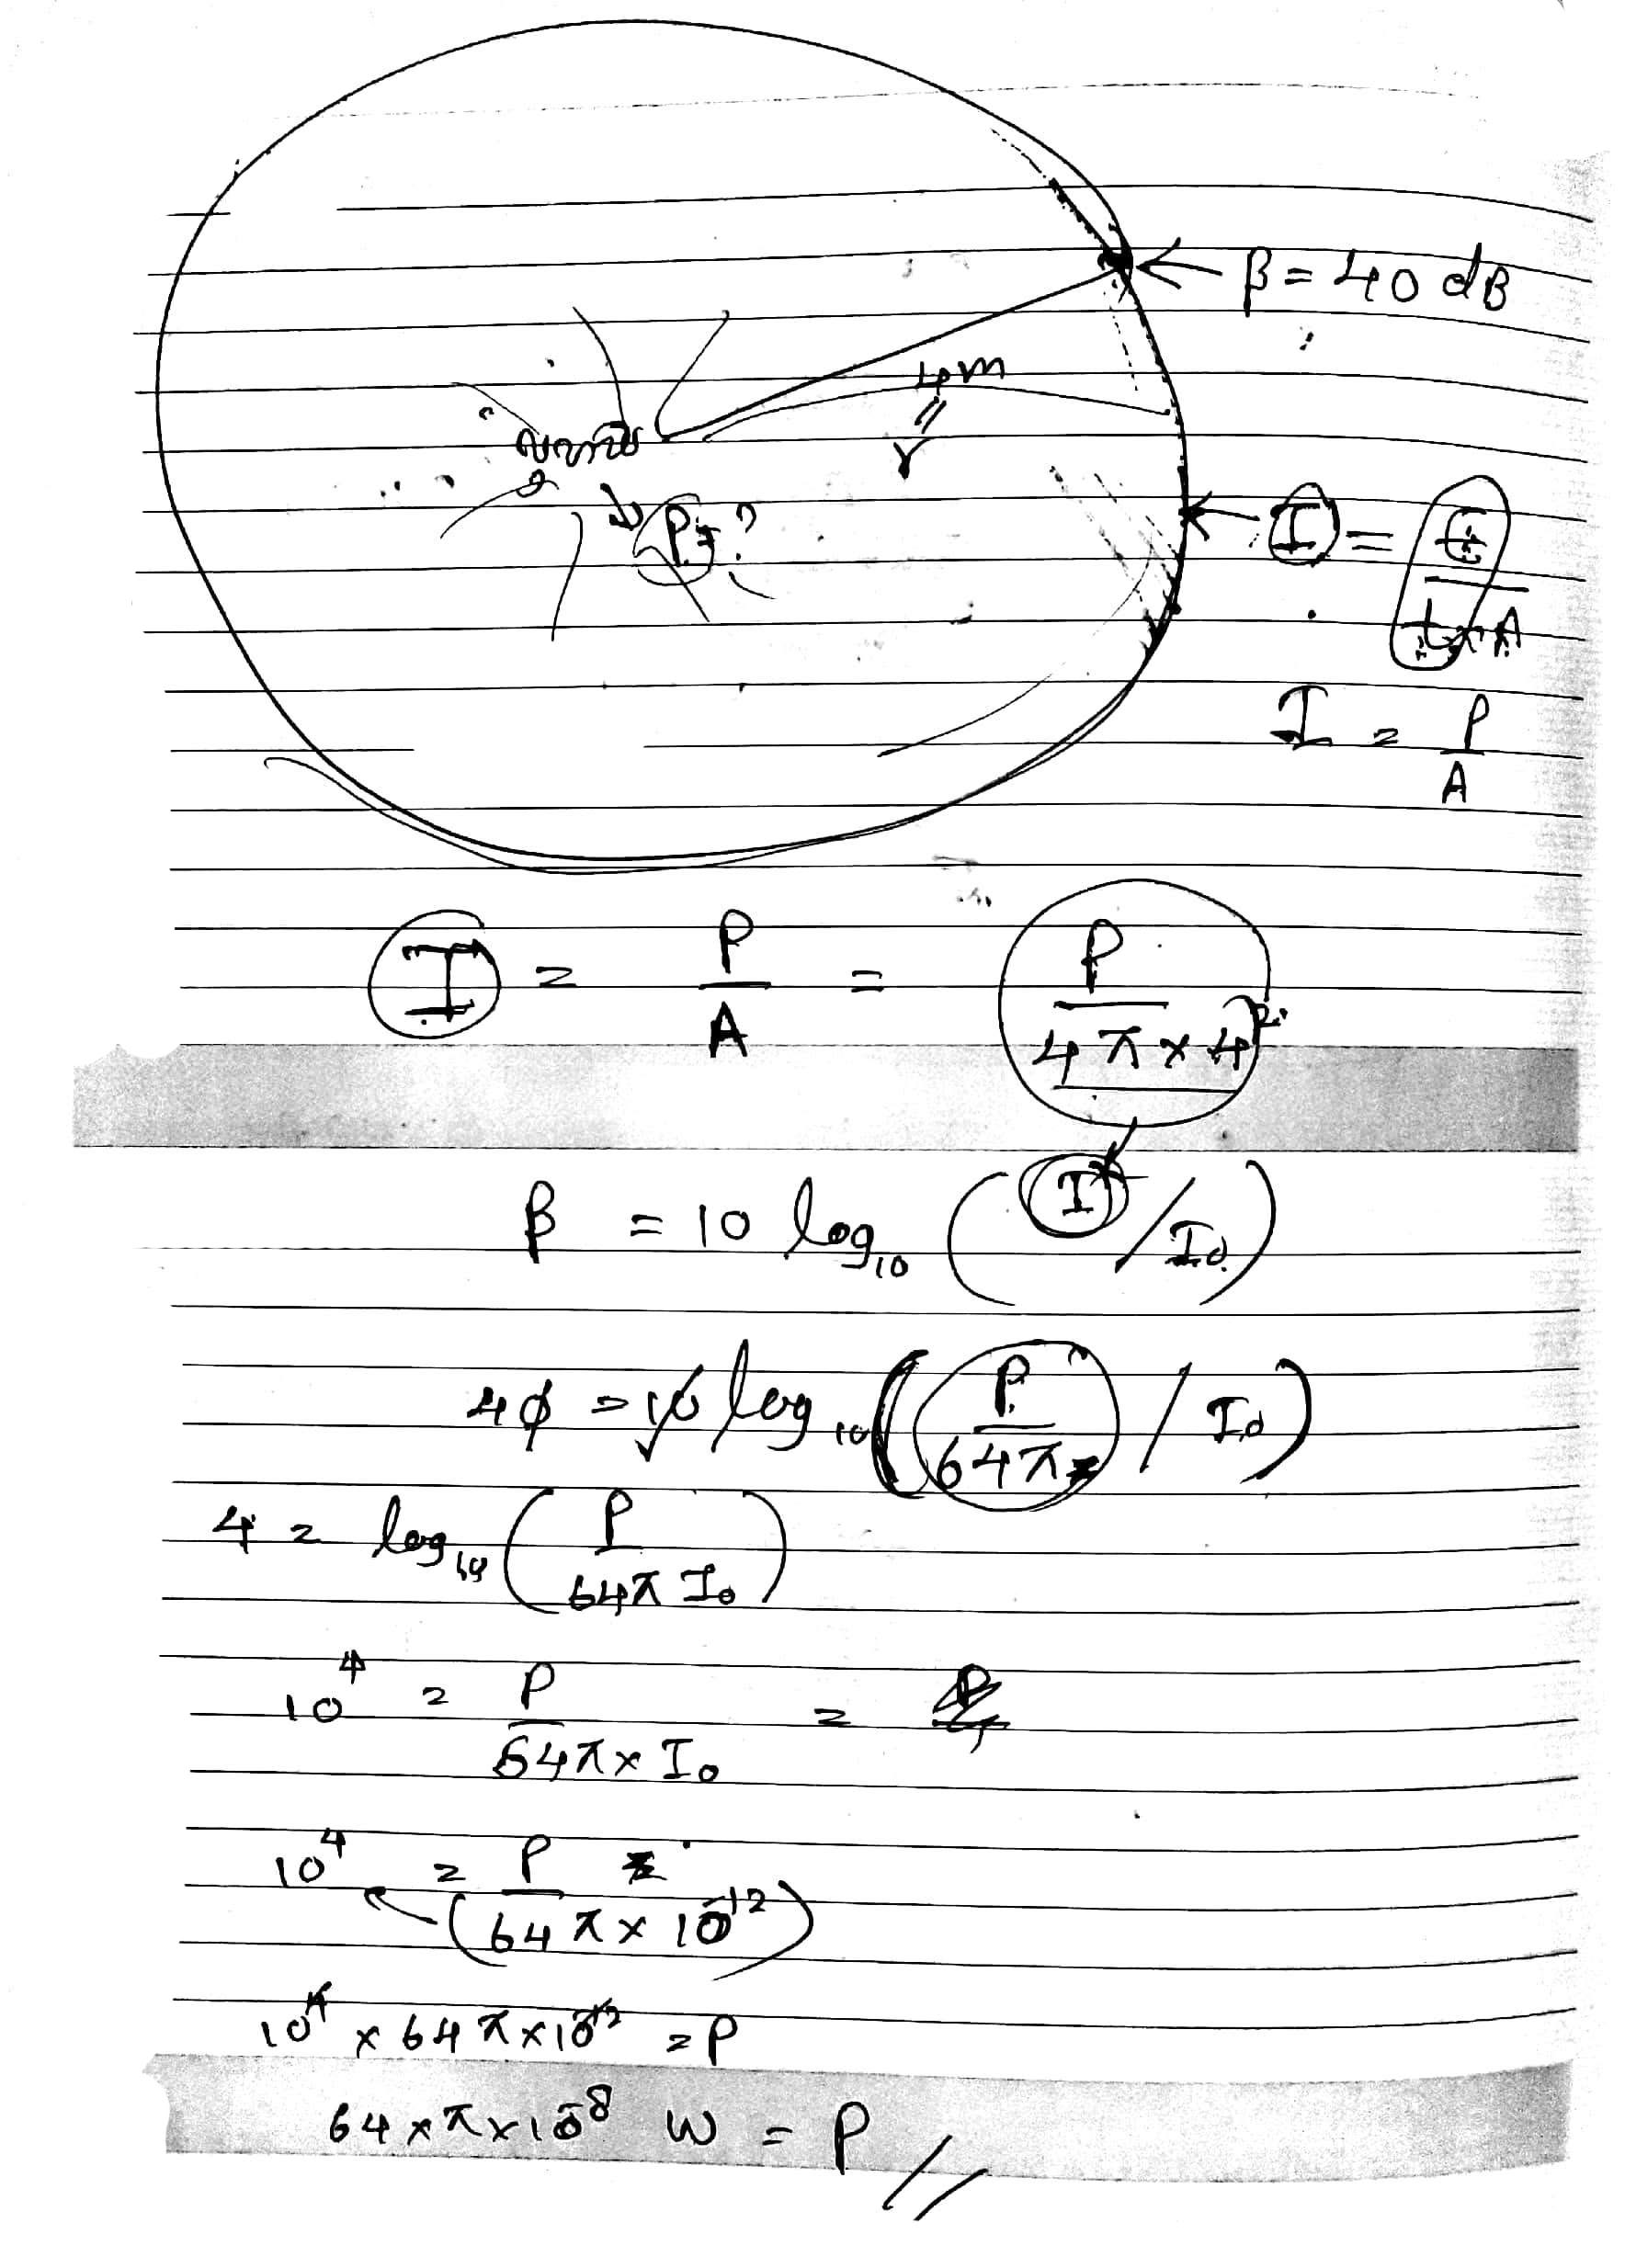 β = 40 dB
4m
r
P = ?
I = E / t × A
I = P / A
I = P / A = P / 4π × 4²
β = 10 log₁₀ ( I / I₀ )
40 = 10 log₁₀ ( P / 64π / I₀ )
4 = log₁₀ ( P / 64π I₀ )
10⁴ = P / 64π × I₀ =
10⁴ = P / ( 64 π × 10⁻¹² )
10⁴ × 64 π × 10⁻¹² = P
64 × π × 10⁻⁸ W = P //